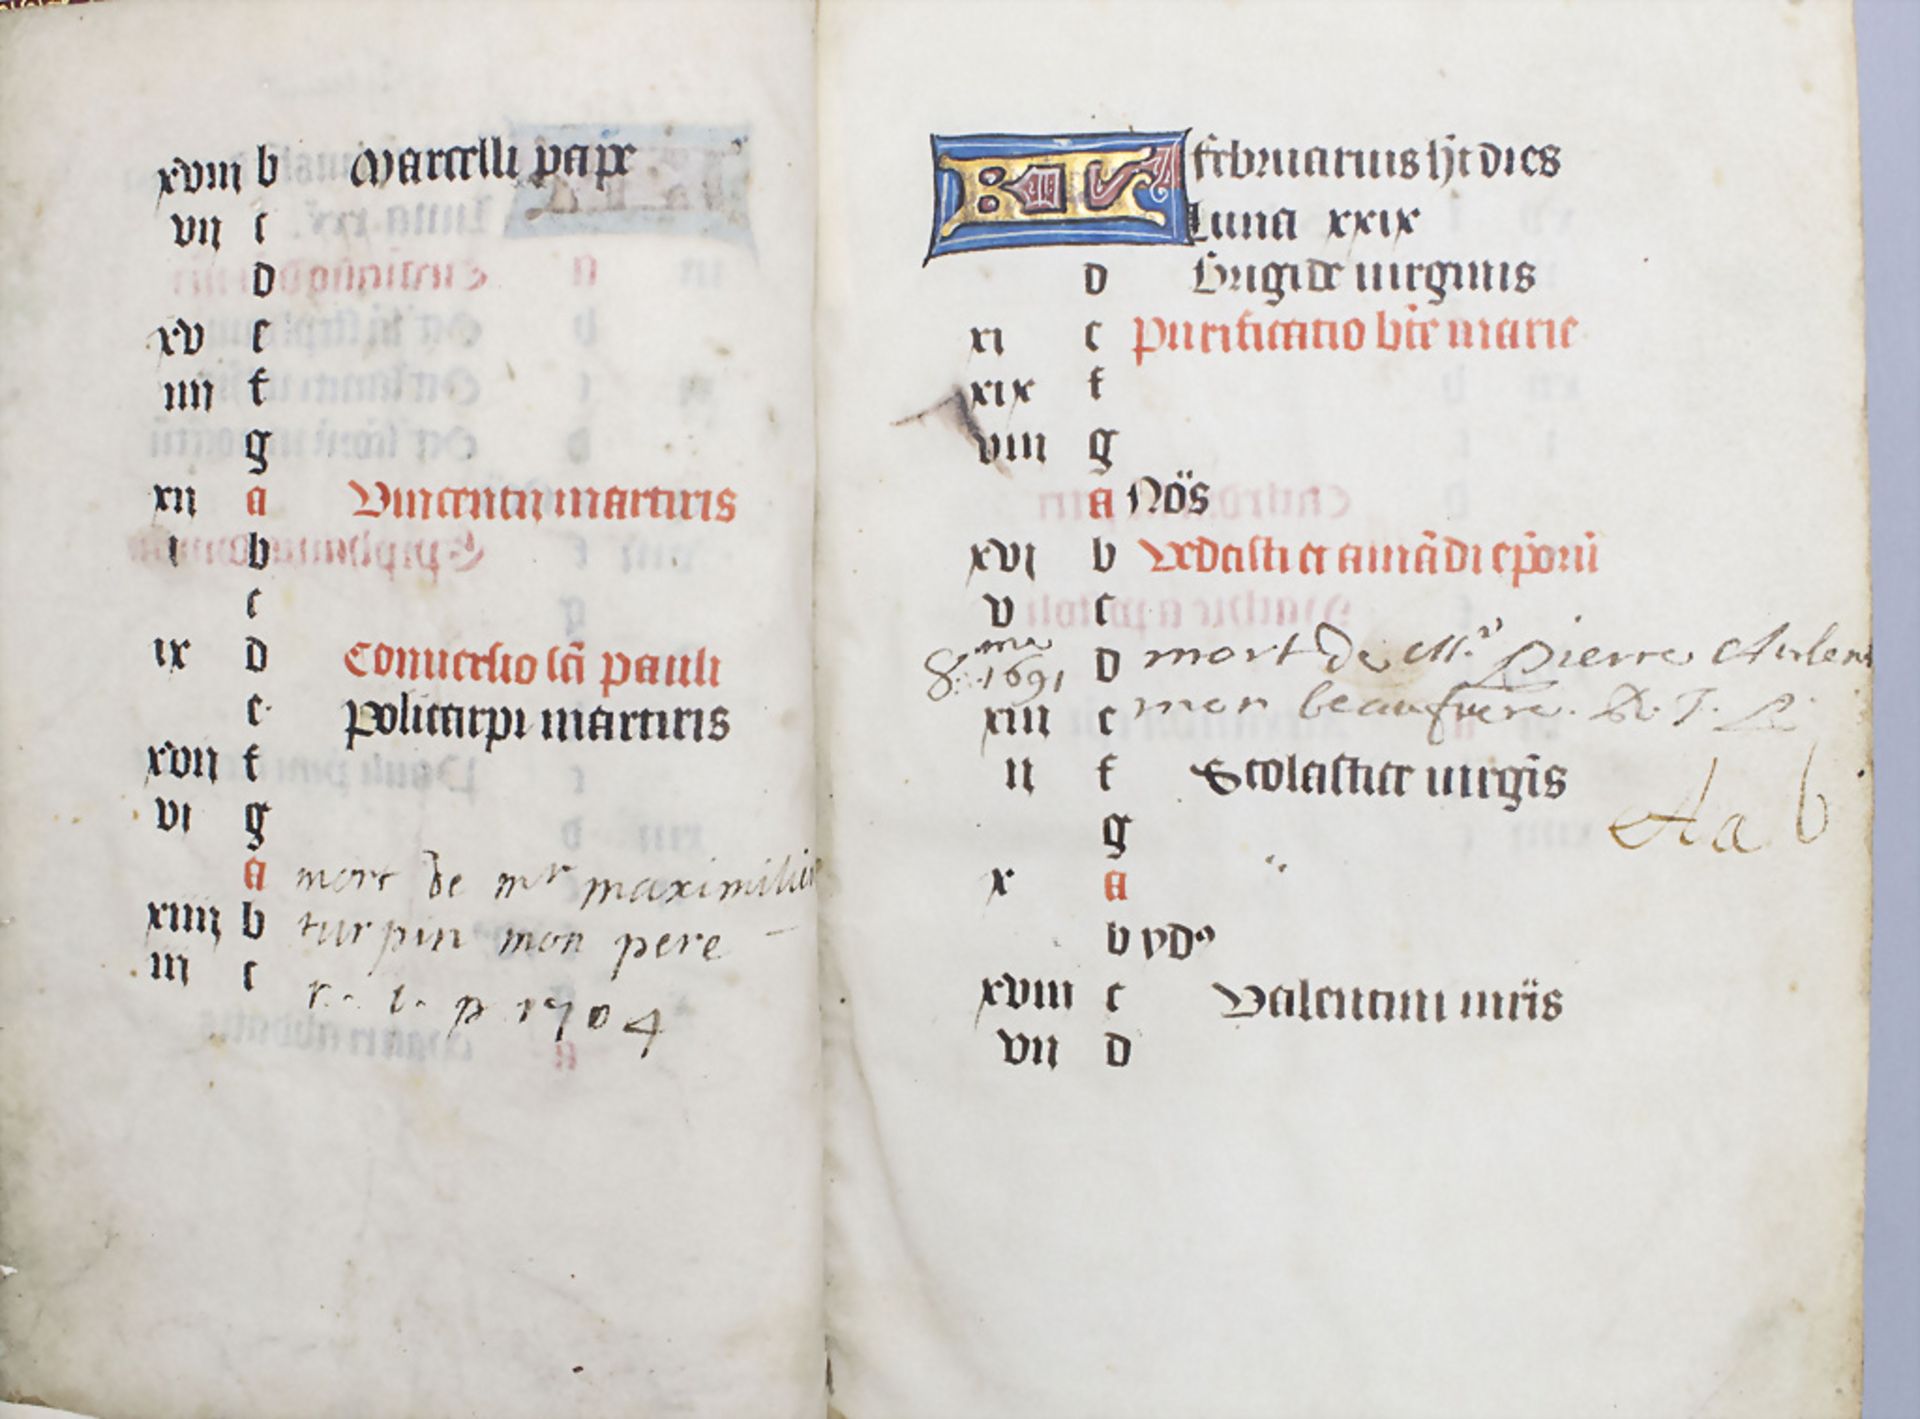 xviii b Marcelli pape
vii c
d
xv e
iiii f
g
xii a Vincentii martiris
i b
c
ix d Conuersio sci pauli
e Policarpi martiris
xvii f
vi g
a mort de mr maximilien
xiiii b turpin mon pere
iii c r. l. p 1704
KL februarius ht dies
Luna xxix
d brigide uirginis
xi e Purificatio bte marie
xix f
viii g
a Nōs
xvi b Vedasti et amādi ep̄orū
v c
8me 1691 d mort de Mr Pierre
xiii e mon beaufrere. R. J. P.
ii f Scolastice uirgīs
Aa b
g
x a
b yd9
xviii c Valentini mr̄is
vii d